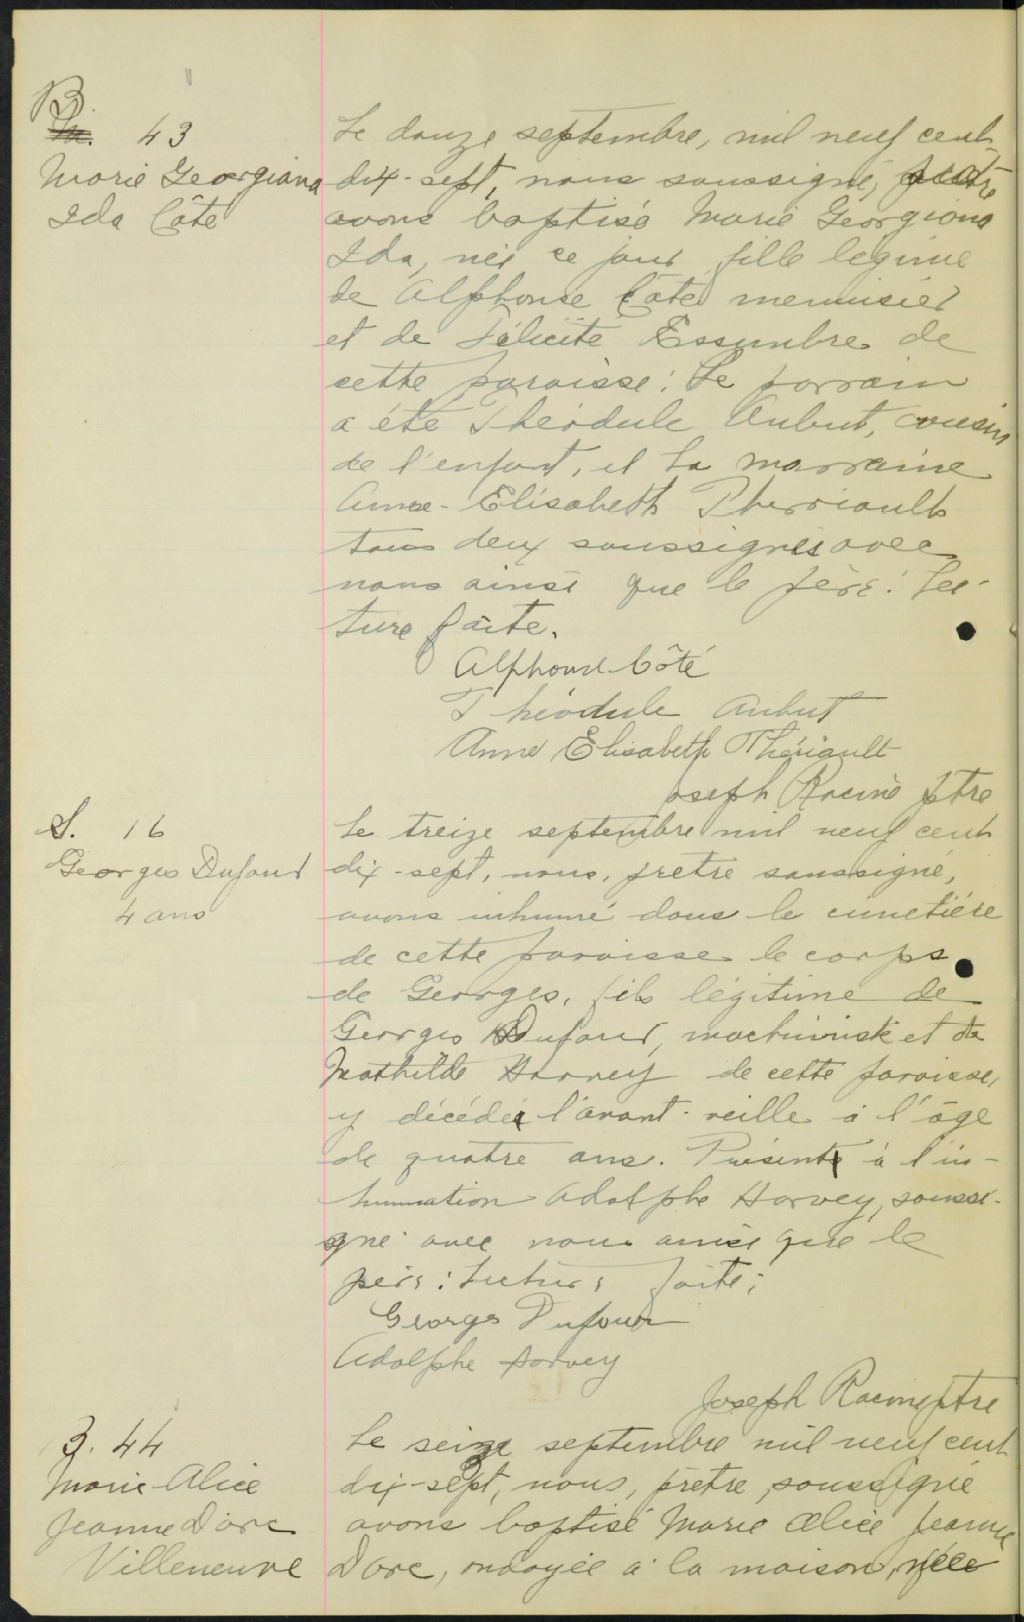 B.
43
Marie Georgiana
Ida Côté
Le douze septembre, mil neuf cent-
dix-sept, nous soussigné, prêtre
avons baptisé Marie Georgiana
Ida, née ce jour fille légime
de Alphonse Côté menuisier
et de Félicité Essiembre de
cette paroisse: Le parrain
a été Théodule Aubut, cousin
de l'enfant, et la marraine
Anne-Elisabeth Therriault
tous deux soussignés avec
nous ainsi que le père: Lec-
ture faite.
Alphonse Côté
Théodule Aubut
Anne Elisabeth Thériault
Joseph Racine ptre
S. 16
Georges Dufour
4 ans
Le treize septembre mil neuf cent
dix-sept, nous, prêtre soussigné,
avons inhumé dans le cimetière
de cette paroisse le corps
de Georges, fils légitime de
Georges Dufour, machiniste et de
Mathilde Harvey de cette paroisse,
y décédé l'avant-veille à l'âge
de quatre ans. Présent à l'in-
humation Adolphe Harvey, soussi-
gné avec nous ainsi que le
père: Lecture faite:
Georges Dufour
Adolphe Harvey
Joseph Racine ptre
B. 44
Marie-Alice
Jeanne Darc
Villeneuve
Le seize septembre mil neuf cent
dix-sept, nous, prêtre soussigné
avons baptisé Marie Alice Jeanne
Darc, ondoyée à la maison, née